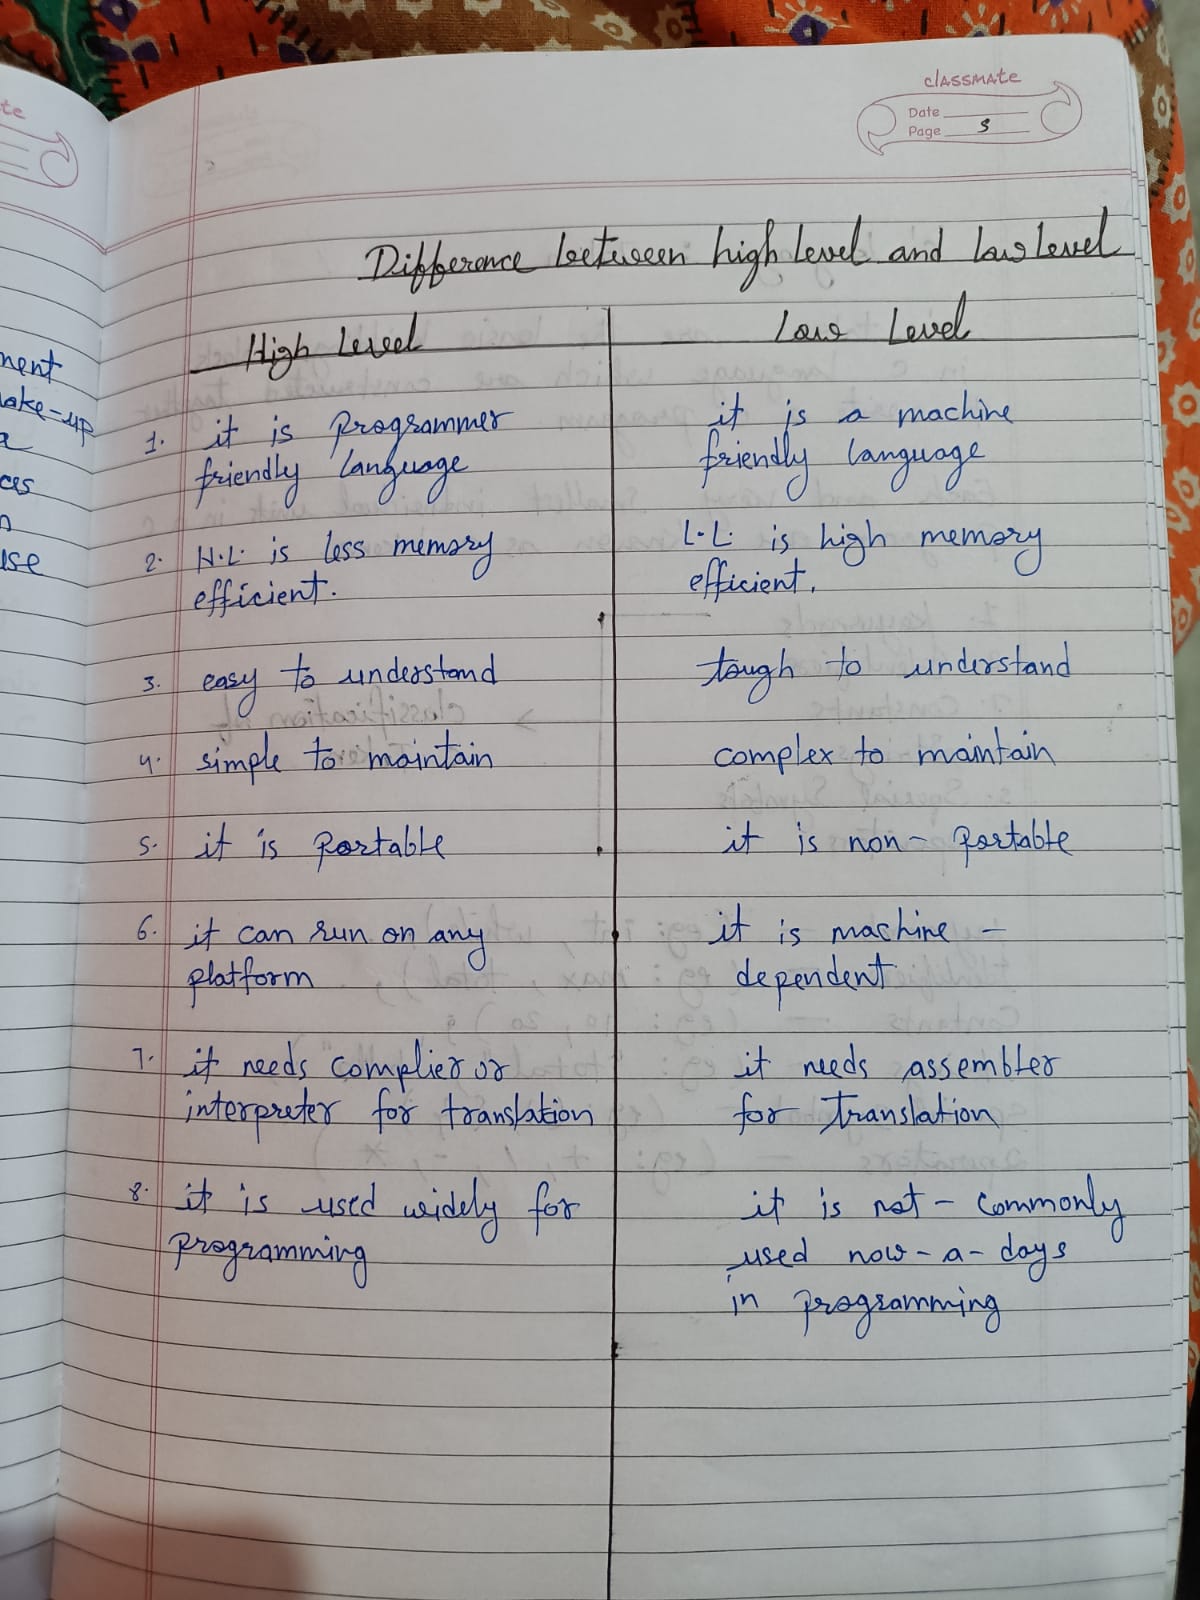 classmate
Date
Page 5
Difference between high level and low level
High Level
Low Level
1. it is programmer
friendly language
it is a machine
friendly language
2. H.L. is less memory
efficient.
L.L. is high memory
efficient.
3. easy to understand
tough to understand
4. simple to maintain
complex to maintain
5. it is portable
it is non- portable
6. it can run on any
platform
it is machine -
dependent
7. it needs complier or
interpreter for translation
it needs assembler
for translation
8. it is used widely for
programming
it is not - commonly
used now-a-days
in programming